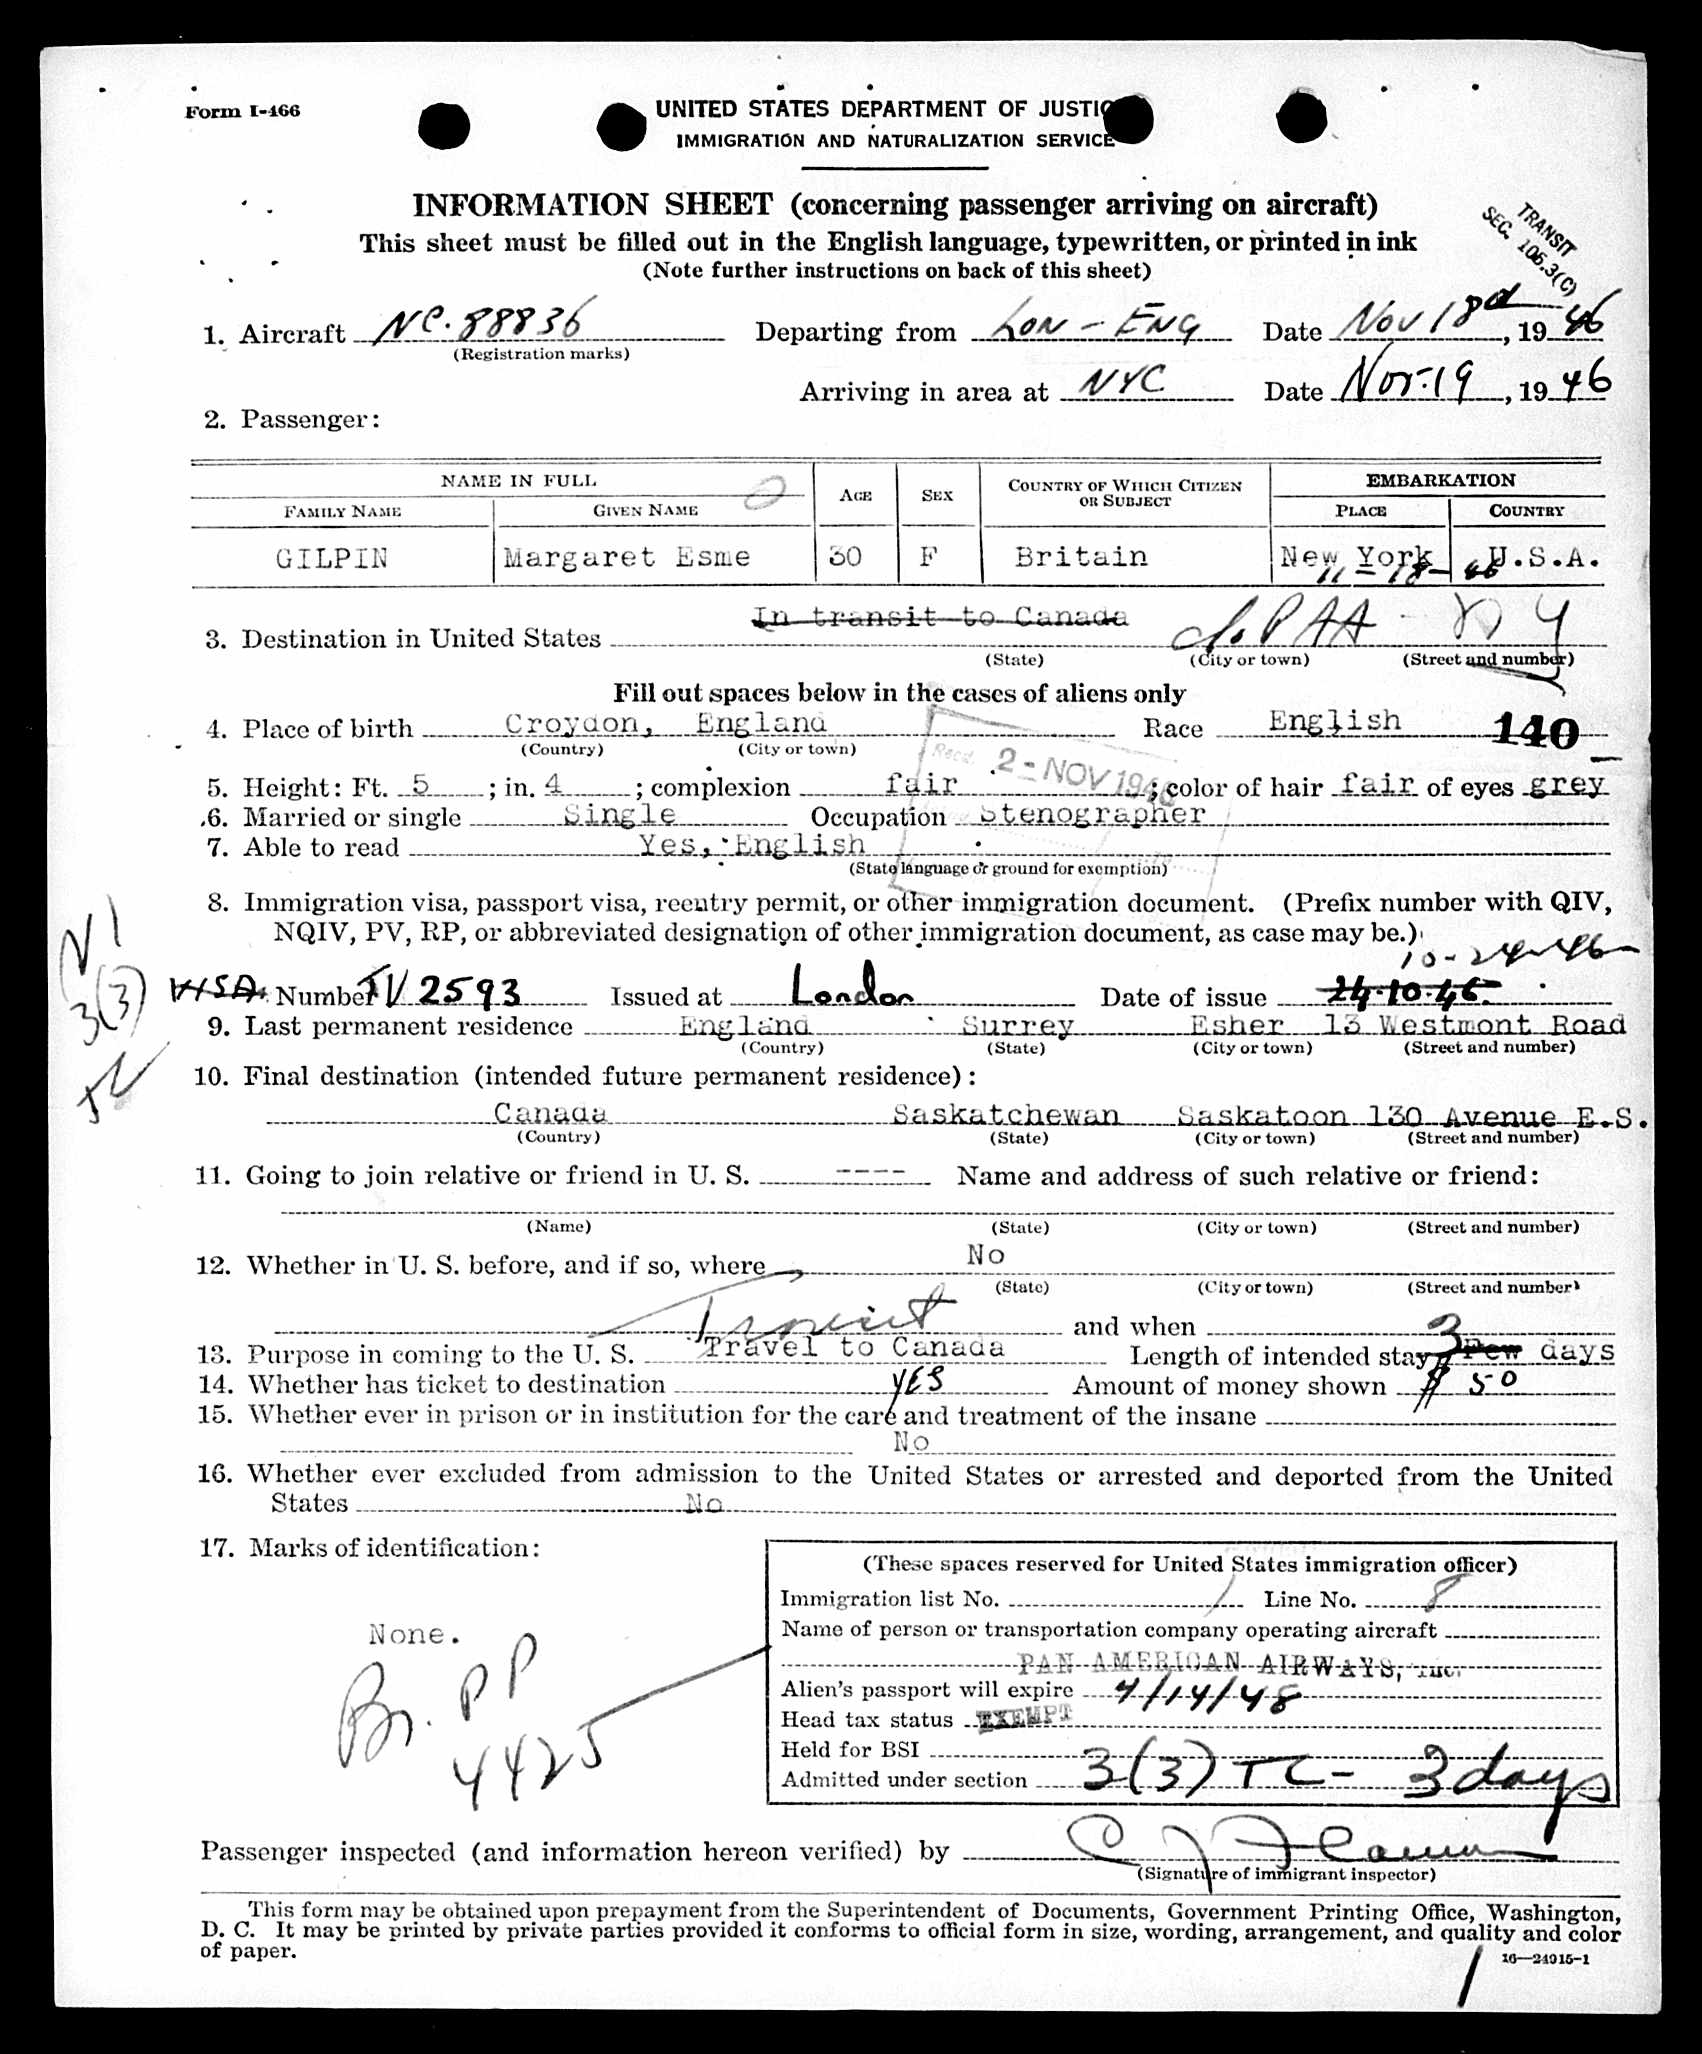 Form I-466
UNITED STATES DEPARTMENT OF JUSTIC
IMMIGRATION AND NATURALIZATION SERVICE
INFORMATION SHEET (concerning passenger arriving on aircraft)
This sheet must be filled out in the English language, typewritten, or printed in ink
(Note further instructions on back of this sheet)
TRANSIT
SEC. 105.3(C)
1. Aircraft NC. 88836 Departing from LON - ENG Date Nov 18, 1946
(Registration marks)
Arriving in area at NYC Date Nov. 19, 1946
2. Passenger:
NAME IN FULL AGE SEX COUNTRY OF WHICH CITIZEN OR SUBJECT EMBARKATION
FAMILY NAME GIVEN NAME PLACE COUNTRY
GILPIN Margaret Esme 30 F Britain New York U.S.A.
11-18-46
In transit to Canada
3. Destination in United States PAA - NY
(State) (City or town) (Street and number)
Fill out spaces below in the cases of aliens only
4. Place of birth Croydon, England Race English 140
(Country) (City or town)
Recd. 2 - NOV 1946
5. Height: Ft. 5 ; in. 4 ; complexion fair ; color of hair fair of eyes grey
6. Married or single Single Occupation Stenographer
7. Able to read Yes, English
(State language or ground for exemption)
8. Immigration visa, passport visa, reentry permit, or other immigration document. (Prefix number with QIV,
NQIV, PV, RP, or abbreviated designation of other immigration document, as case may be.)
10-24-46
VISA. Number TV 2593 Issued at London Date of issue 24.10.46
3(3)
9. Last permanent residence England Surrey Esher 13 Westmont Road
(Country) (State) (City or town) (Street and number)
10. Final destination (intended future permanent residence):
Canada Saskatchewan Saskatoon 130 Avenue E.S.
(Country) (State) (City or town) (Street and number)
11. Going to join relative or friend in U. S. ---- Name and address of such relative or friend:
(Name) (State) (City or town) (Street and number)
12. Whether in U. S. before, and if so, where No
(State) (City or town) (Street and number)
Transit and when
13. Purpose in coming to the U. S. Travel to Canada Length of intended stay 3 Few days
14. Whether has ticket to destination YES Amount of money shown $ 50
15. Whether ever in prison or in institution for the care and treatment of the insane
No
16. Whether ever excluded from admission to the United States or arrested and deported from the United
States No
17. Marks of identification:
None.
Br. PP
4425
(These spaces reserved for United States immigration officer)
Immigration list No. 1 Line No. 8
Name of person or transportation company operating aircraft
PAN AMERICAN AIRWAYS, INC.
Alien's passport will expire 4/14/48
Head tax status EXEMPT
Held for BSI
Admitted under section 3(3) TC - 3 days
Passenger inspected (and information hereon verified) by
(Signature of immigrant inspector)
This form may be obtained upon prepayment from the Superintendent of Documents, Government Printing Office, Washington,
D. C. It may be printed by private parties provided it conforms to official form in size, wording, arrangement, and quality and color
of paper.
16—24915-1
1